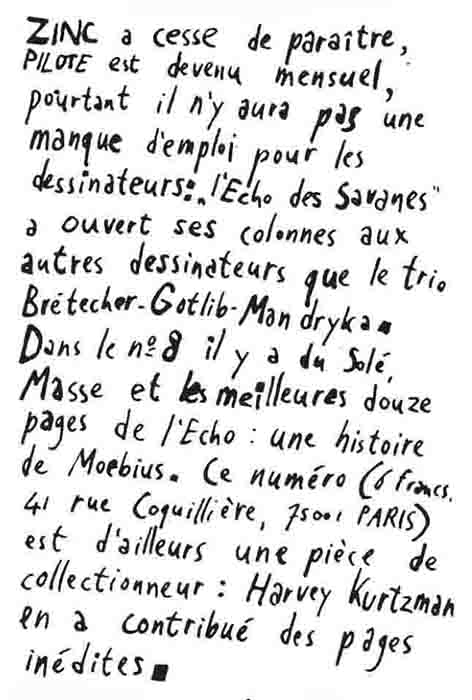 ZINC a cesse de paraître,
PILOTE est devenu mensuel,
pourtant il n'y aura pas une
manque d'emploi pour les
dessinateurs: „l'Echo des Savanes"
a ouvert ses colonnes aux
autres dessinateurs que le trio
Brétecher-Gotlib-Mandryka.
Dans le nº 8 il y a du Solé,
Masse et les meilleures douze
pages de l'Echo : une histoire
de Moebius. Ce numéro (6 francs.
41 rue Coquillière, 75001 PARIS)
est d'ailleurs une pièce de
collectionneur : Harvey Kurtzman
en a contribué des pages
inédites.